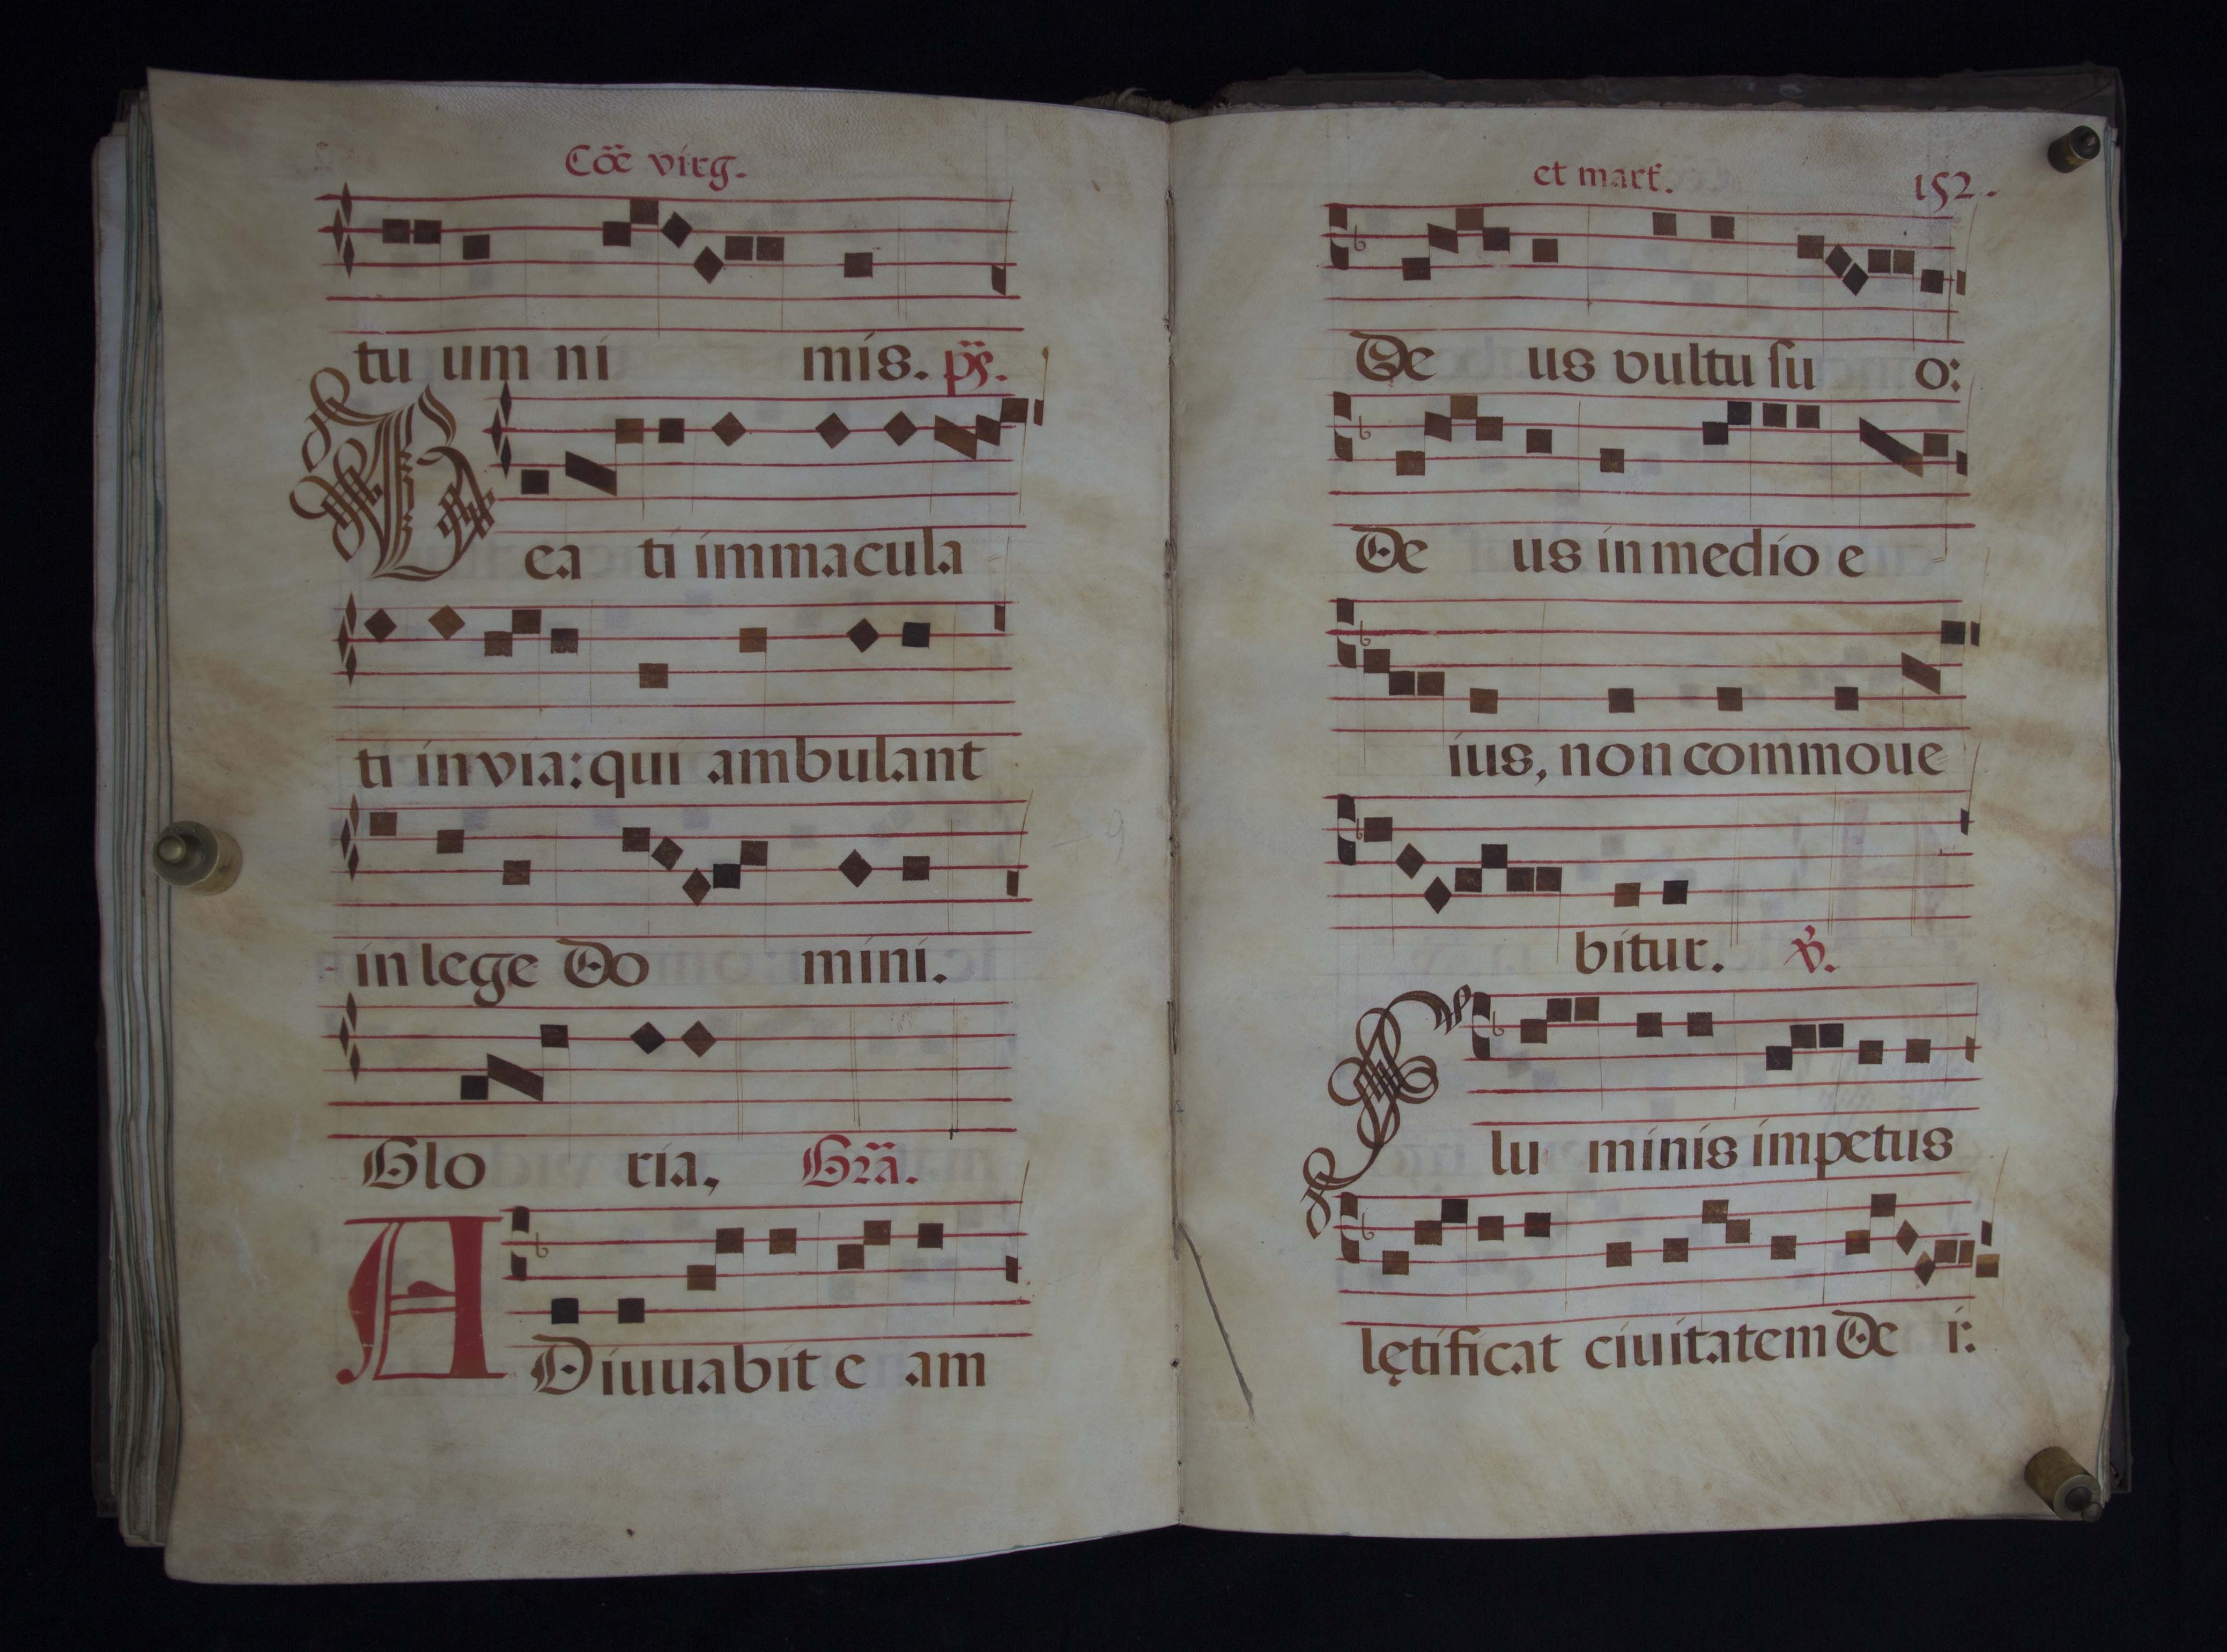 Cōe virg.
tu um ni mis. ps̄.
Bea ti immacula
ti in via: qui ambulant
in lege Do mini.
Glo ria, Gr̄a.
ADiuuabit e am
et mart̄. 152.
De us vultu ſu o:
De us in medio e
ius, non commoue
bitur. ℣.
Flu minis impetus
lętificat ciuitatem De i: